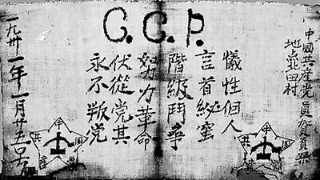 C.C.P.
中國共産党員賀頁朵
地点北田村
犧牲個人
言首秘蜜
階級鬥爭
努力革命
伏從党其
永不叛党
一九卅一年一月廿五日